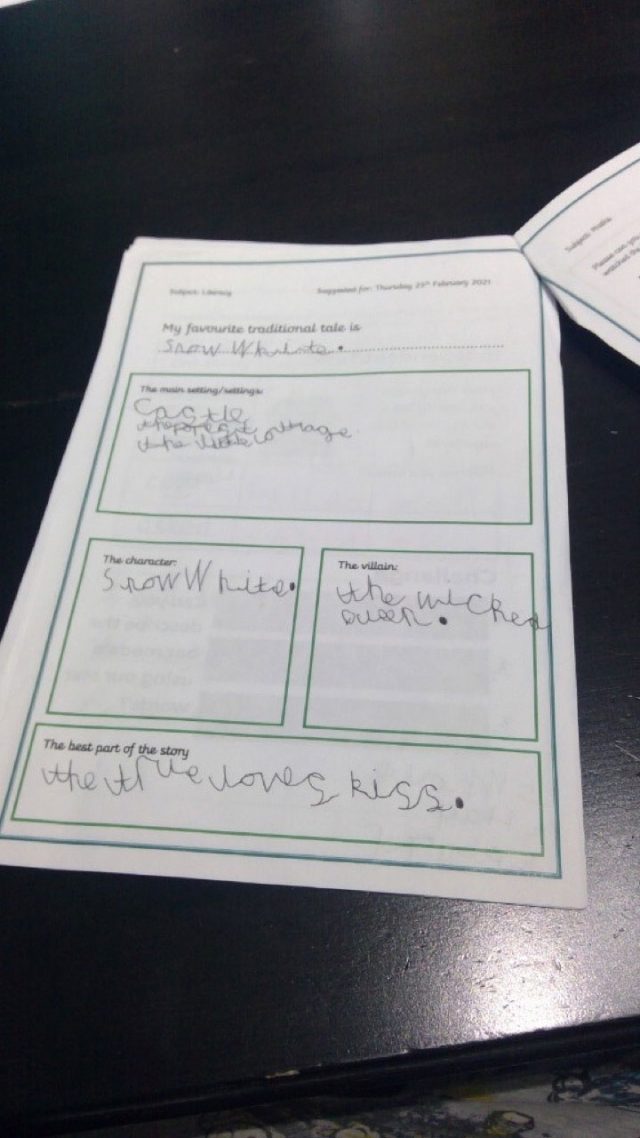 Subject: Literacy
Suggested for: Thursday 25th February 2021
My favourite traditional tale is
Snow White.
The main setting/settings:
Castle
the forest
the little cottage
The character:
Snow White.
The villain:
the wicked
queen.
The best part of the story
the true loves kiss.
Subject: Maths
Please can you
watched the